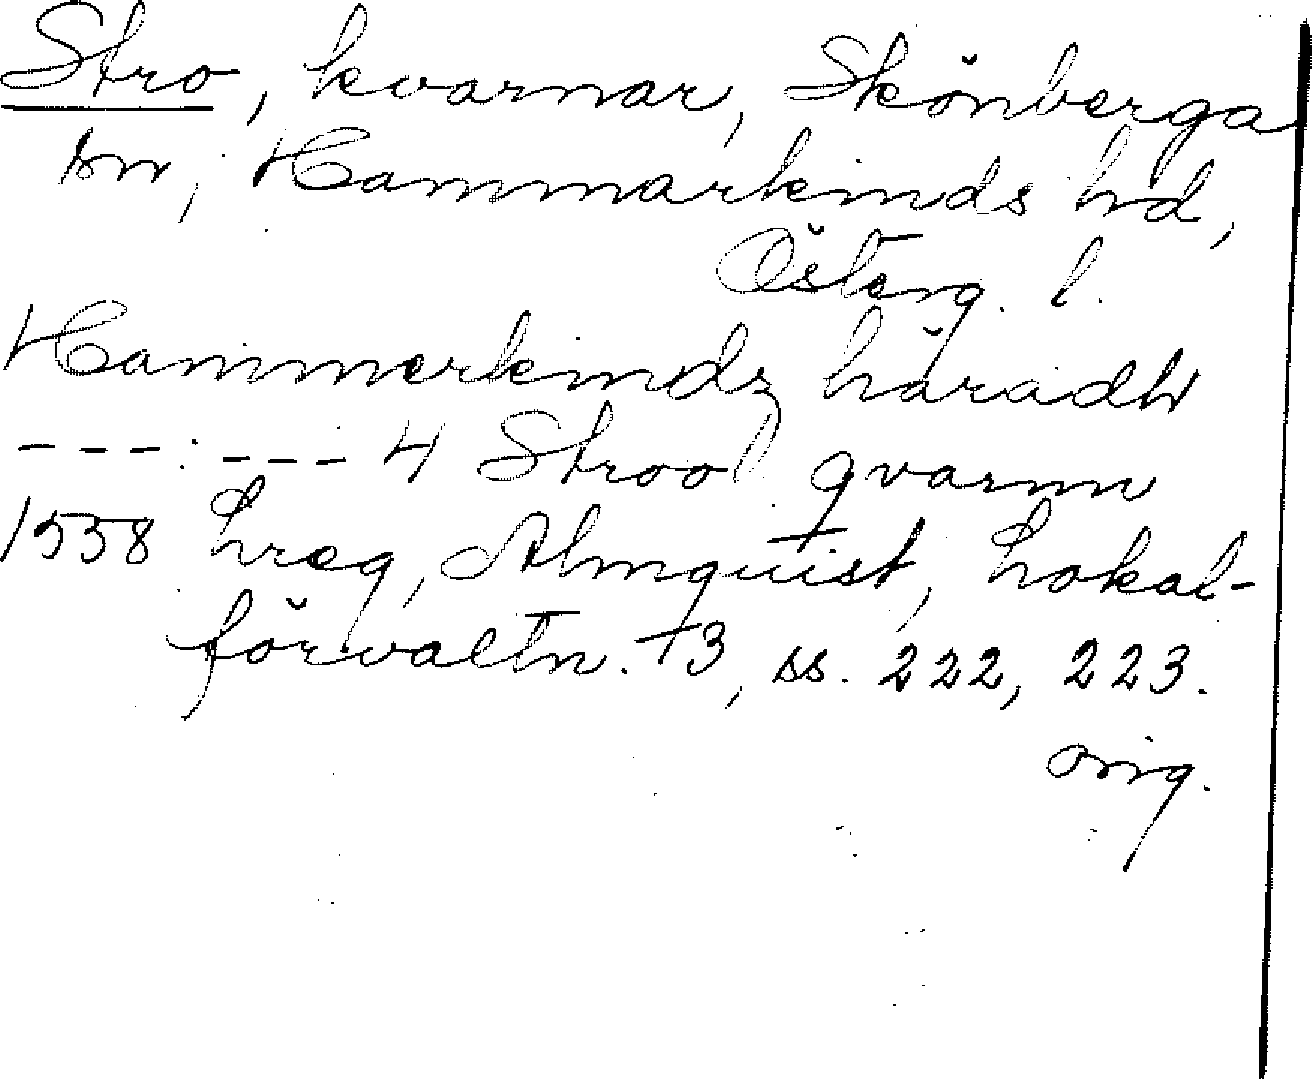 Stro, kvarnar, Skönberga
sn, Hammarkinds hd,
Österg. l.
Hammerkindz häradh
---:---4 Strool qvarnn
1558 hreg, Almquist, Lokal-
förvaltn. †3, ss. 222, 223.
orig.